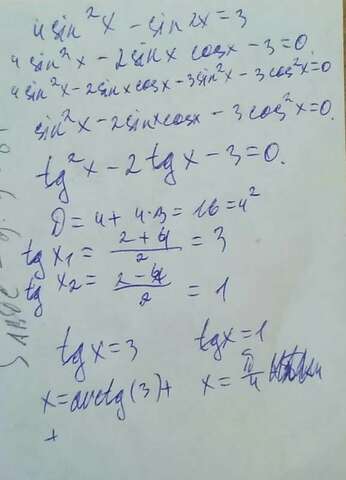 4sin²x - sin2x = 3
4sin²x - 2sinx cosx - 3 = 0.
4sin²x - 2sinxcosx - 3sin²x - 3cos²x = 0
sin²x - 2sinxcosx - 3cos²x = 0.
tg²x - 2tgx - 3 = 0.
D = 4 + 4·3 = 16 = 4²
tg x₁ = (2+4)/2 = 3
tg x₂ = (2-4)/2 = 1
tgx = 3 tgx = 1
x = arctg(3) + x = π/4
+